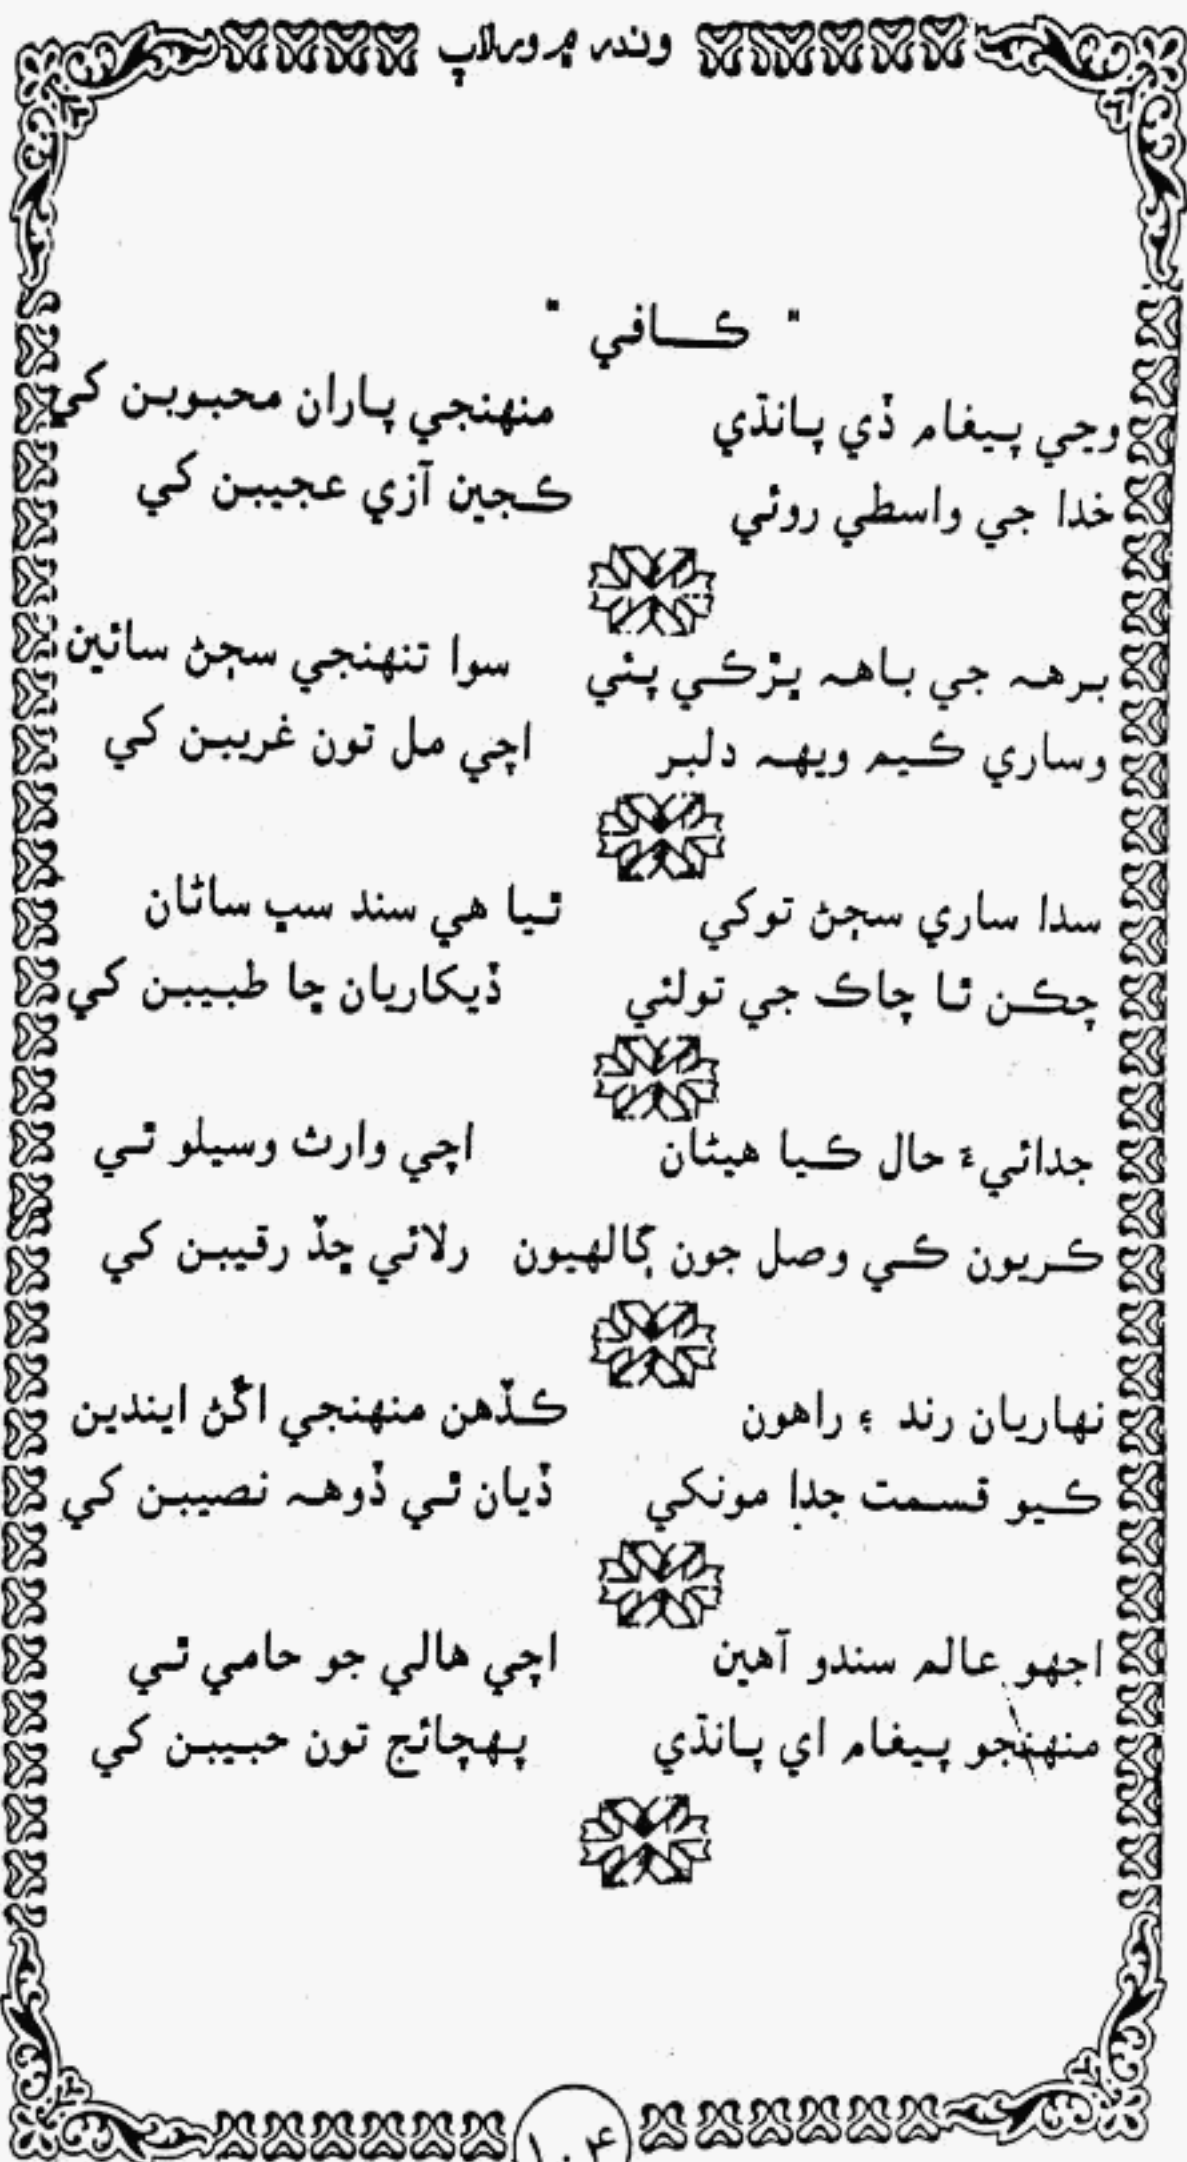 وندر ۾ ورلاپ
" ڪافي "
وڃي پيغام ڏي پانڌي منهنجي پاران محبوبن کي
خدا جي واسطي روئي ڪجين آزي عجيبن کي
برهه جي باهه ڀڙڪي پئي سوا تنهنجي سڄڻ سائين
وساري ڪيم ويهه دلبر اچي مل تون غريبن کي
سدا ساري سڄڻ توکي ٿيا هي سنڌ سڀ ساڻان
چڪن ٿا چاڪ جي تولئي ڏيکاريان ڇا طبيبن کي
جدائيءَ حال ڪيا هيڻان اچي وارث وسيلو ٿي
ڪريون ڪي وصل جون ڳالهيون رلائي ڇڏ رقيبن کي
نهاريان رند ۽ راهون ڪڏهن منهنجي اڱڻ ايندين
ڪيو قسمت جدا مونکي ڏيان ٿي ڏوهه نصيبن کي
اجهو عالم سندو آهين اچي هالي جو حامي ٿي
منهنجو پيغام اي پانڌي پهچائج تون حبيبن کي
۱۰۴